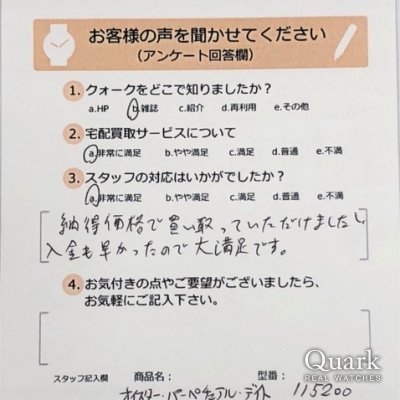 お客様の声を聞かせてください
(アンケート回答欄)
1. クォークをどこで知りましたか?
a.HP b.雑誌 c.紹介 d.再利用 e.その他
2. 宅配買取サービスについて
a.非常に満足 b.やや満足 c.満足 d.普通 e.不満
3. スタッフの対応はいかがでしたか?
a.非常に満足 b.やや満足 c.満足 d.普通 e.不満
納得価格で買い取っていただけましたし
入金も早かったので大満足です。
4. お気付きの点やご要望がございましたら、
お気軽にご記入下さい。
Quark
REAL WATCHES
スタッフ記入欄 商品名: 型番:
オイスター・パーペチュアル・デイト 115200